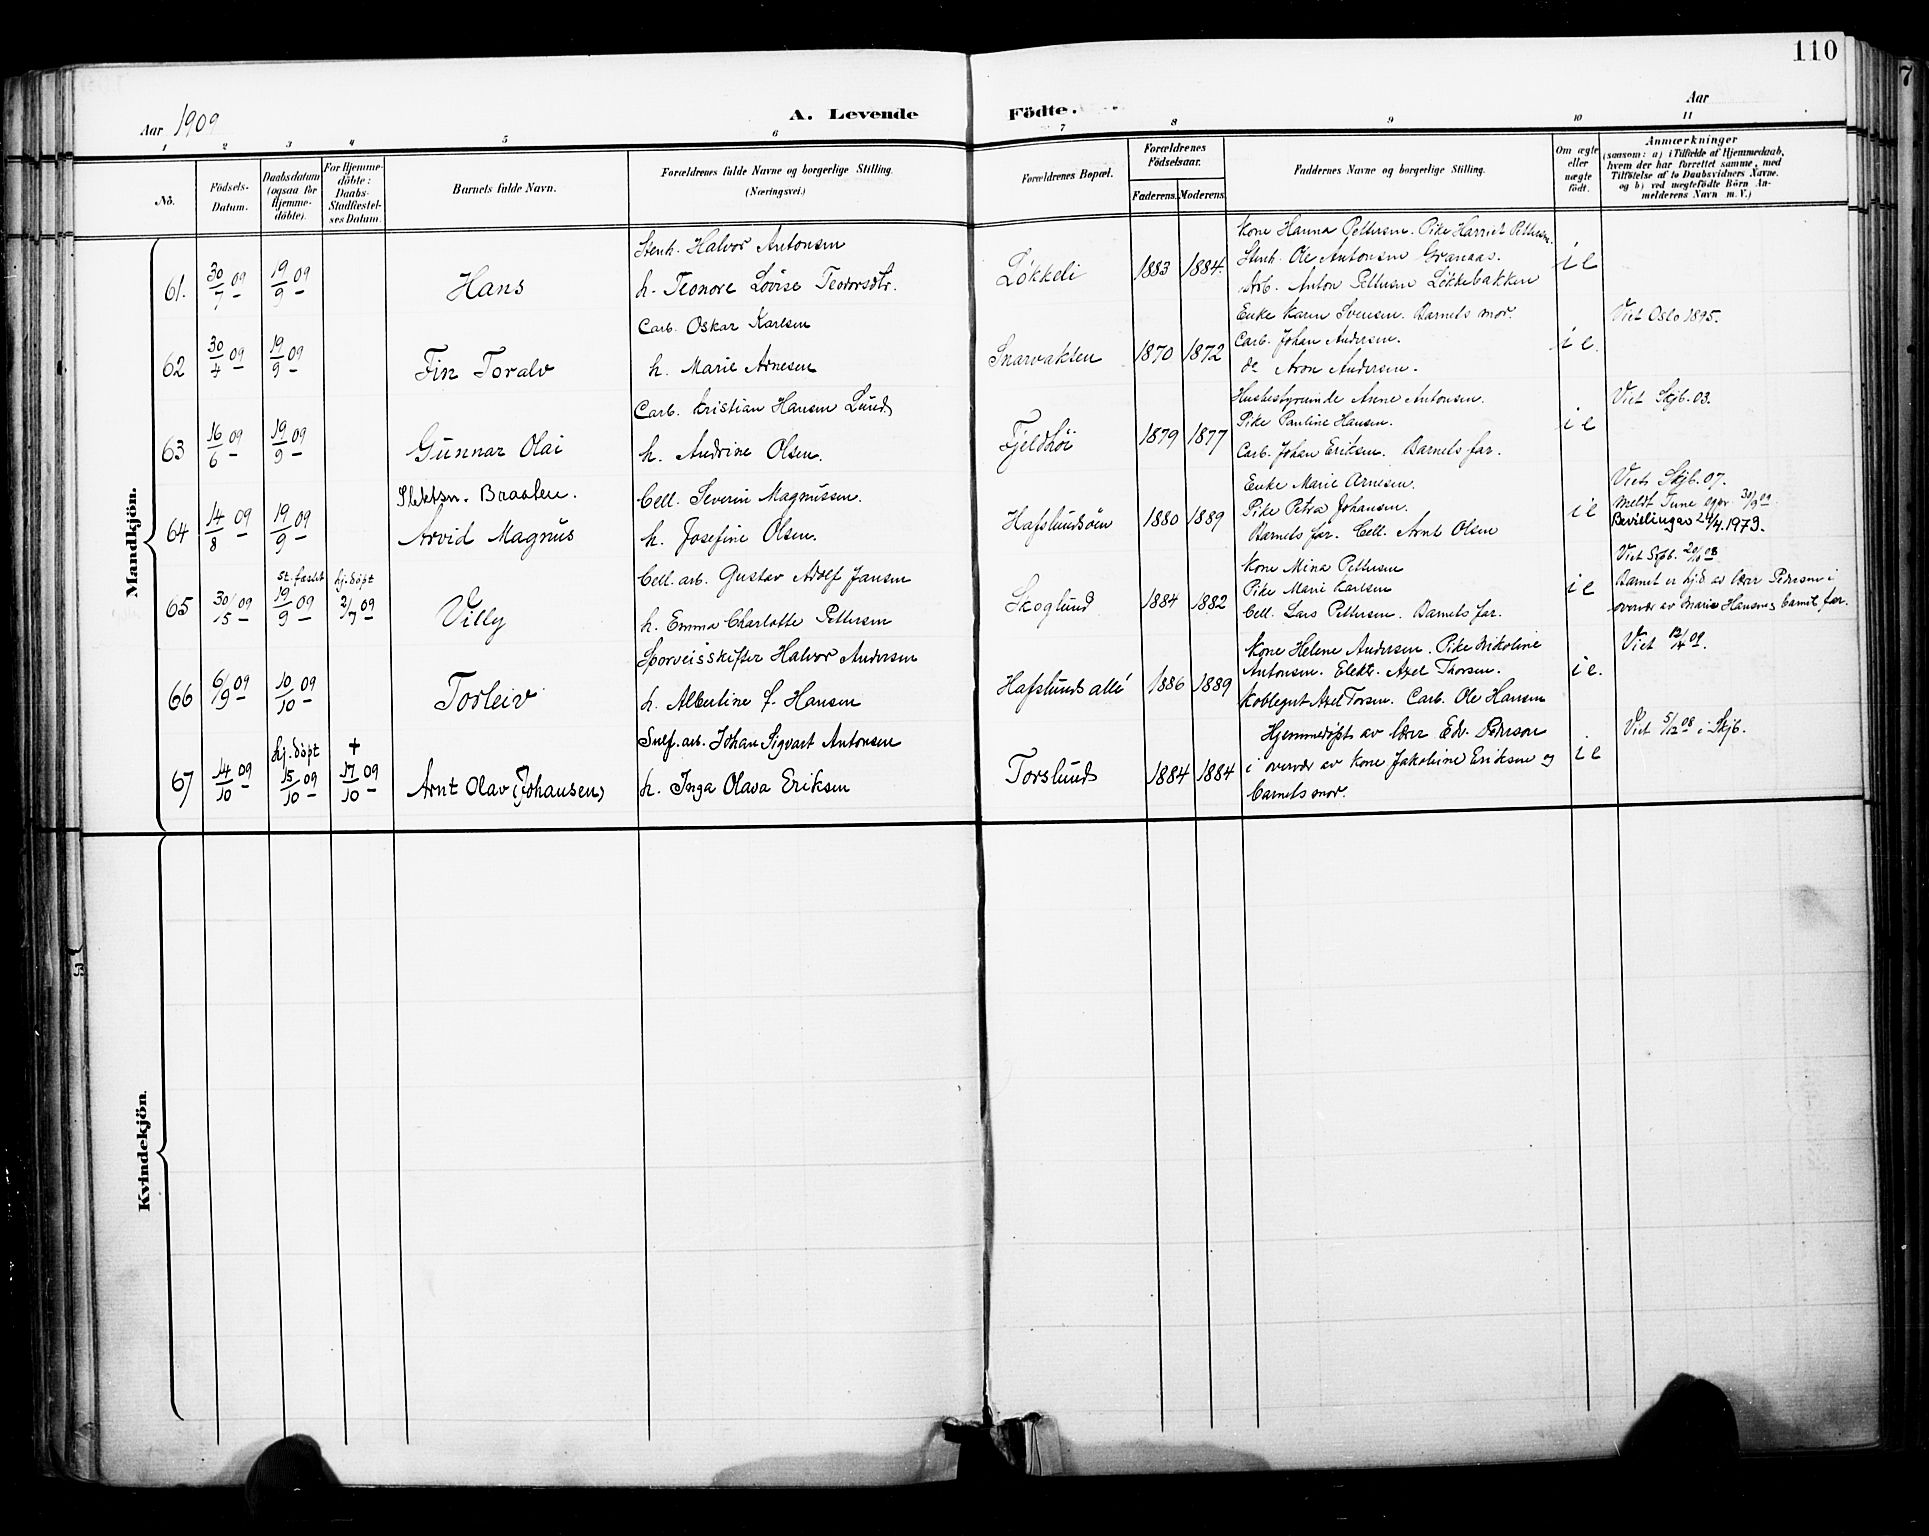 110
Aar 1909
A. Levende Födte.
Aar
1 2 3 4 5 6 7 8 9 10 11
No.
Födsels-Datum.
Daabsdatum (ogsaa for Hjemme-döbte).
For Hjemme-döbte: Daabs-Stadfæstel-ses Datum.
Barnets fulde Navn.
Forældrenes fulde Navne og borgerlige Stilling. (Næringsvei.)
Forældrenes Bopæl.
Forældrenes Födselsaar.
Faderens. Moderens.
Faddernes Navne og borgerlige Stilling.
Om ægte eller uægte født.
Anmærkninger
(saasom: a) i Tilfælde af Hjemmedaab, hvem der har forrettet samme, med Tilføielse af to Daabsvidners Navne. og b) ved uægtefödte Börn An-melderens Navn m. V.)
Mandkjön.
61. 30/7 09 19/9 09 Hans
Stenh. Halvor Antonsen
h. Teonore Lovise Teodorsdtr.
Løkkeli 1883 1884.
Kone Hanna Pettersen. Pike Harriet Pettersen.
Stenh. Ole Antonsen Granaas.
Arb. Anton Pettersen Løkkebakken
i e
62 30/4 09 19/9 09 Fin Toralv
Carb. Oskar Karlsen
h. Marie Arnesen
Snarvakten 1870 1872
Enke Karen Svensen. Barnets mor.
Carb. Johan Andersen.
do Aron Andersen.
i e.
Viet Oslo 1895.
63 16/6 09 19/9 09 Gunnar Olai
Carb. Kristian Hansen Lund
h. Andrine Olsen.
Fjeldhøi 1879 1877
Husbestyrerinde Anne Antonsen.
Pike Pauline Hansen.
Carb. Johan Eriksen. Barnets far.
i e
Viet Skjb. 03.
64 14/8 09 19/9 09
Slektsn. Braaten.
Arvid Magnus
Cell. Severin Magnussen.
h. Josefine Olsen.
Hafslundsøen 1880 1889
Enke Marie Arnesen.
Pike Petra Johansen.
Barnets far. Cell. Arnt Olsen
i e
Viet Skjb. 07.
Meldt Tune 30/9 09.
Bevillingav 24/4. 1973.
65 30/5 09 st.fæstet 19/9 09 hj.døpt 2/7 09 Villy
Cell. arb. Gustav Adolf Jansen
h. Emma Charlotte Pettersen
Skoglund 1884 1882
Kone Mina Pettersen
Pike Marie Karlsen
Cell. Lars Pettersen. Barnets far.
i e
Viet Spb. 20/ 08
Barnet er hj.d av lærer Pedersen i
overvær av Marie Hansen & barnets far.
66 6/9 09 10/10 09 Torleiv
Sporveisskifter Halvor Andersen
h. Albertine f. Hansen
Hafslunds allé 1886 1889
Kone Helene Andersen. Pike Nikoline
Antonsen. Elektr. Axel Thorsen.
Koblegut Axel Torsen. Carb. Ole Hansen
i e.
Viet 12/4 09.
67 14/10 09 hj.døpt 15/10 09 + 17/10 09 Arnt Olav (Johansen)
Snef. arb. Johan Sigvart Antonsen
h. Inga Olava Eriksen
Torslund 1884 1884
Hjemmedøpt av lærer Edv. Pederson
i overvær av kone Jakobine Eriksen og
barnets mor.
i e
Viet 5/12 08 i Skjb.
Kvindekjön.